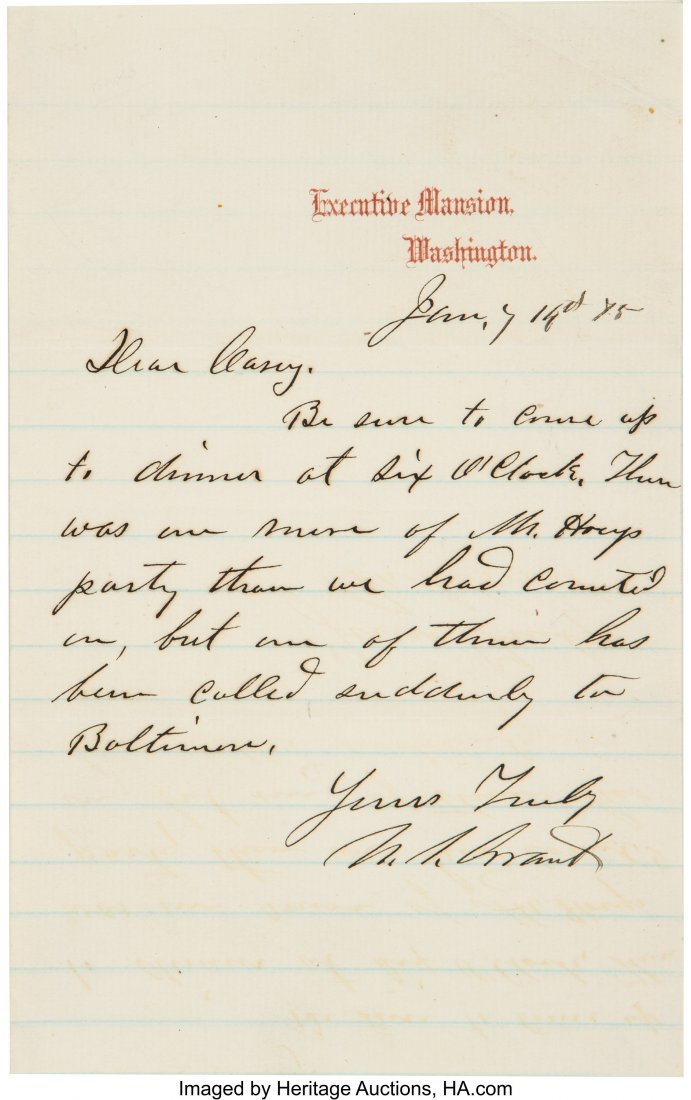 Executive Mansion,
Washington.
Jan. 7 14th 75
Dear Casey.
Be sure to come up
to dinner at six O'Clock. There
was one more of Mr. Hoeys
party than we had counted
on, but one of them has
been called suddenly to
Baltimore.
Yours Truly
U. S. Grant
Imaged by Heritage Auctions, HA.com